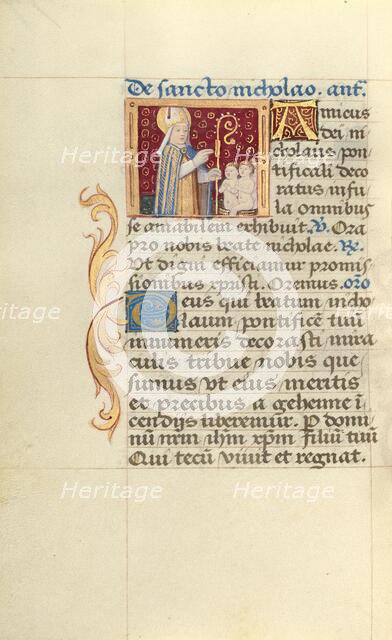 De sancto nicholao. ant̄.
Amicus
dei ni
cholaus pon
tificali deco
ratus infu
la omnibus
se amabilem exhibuit. V̄. Ora
pro nobis beate nicholae. R̄e.
Vt digni efficiamur promis
sionibus xpristi. Oremus. oro
Deus qui beatum nicho
laum pontificē tuū
innumeris decorasti mira
culis tribue nobis que
sumus vt eius meritis
et precibus a gehenne ī
cendijs liberemur. P domi
nū nrm ihm xpm filiū tuū
Qui tecū viuit et regnat.
Heritage
Heritage
Heritage
Heritage
Heritage
Heritage